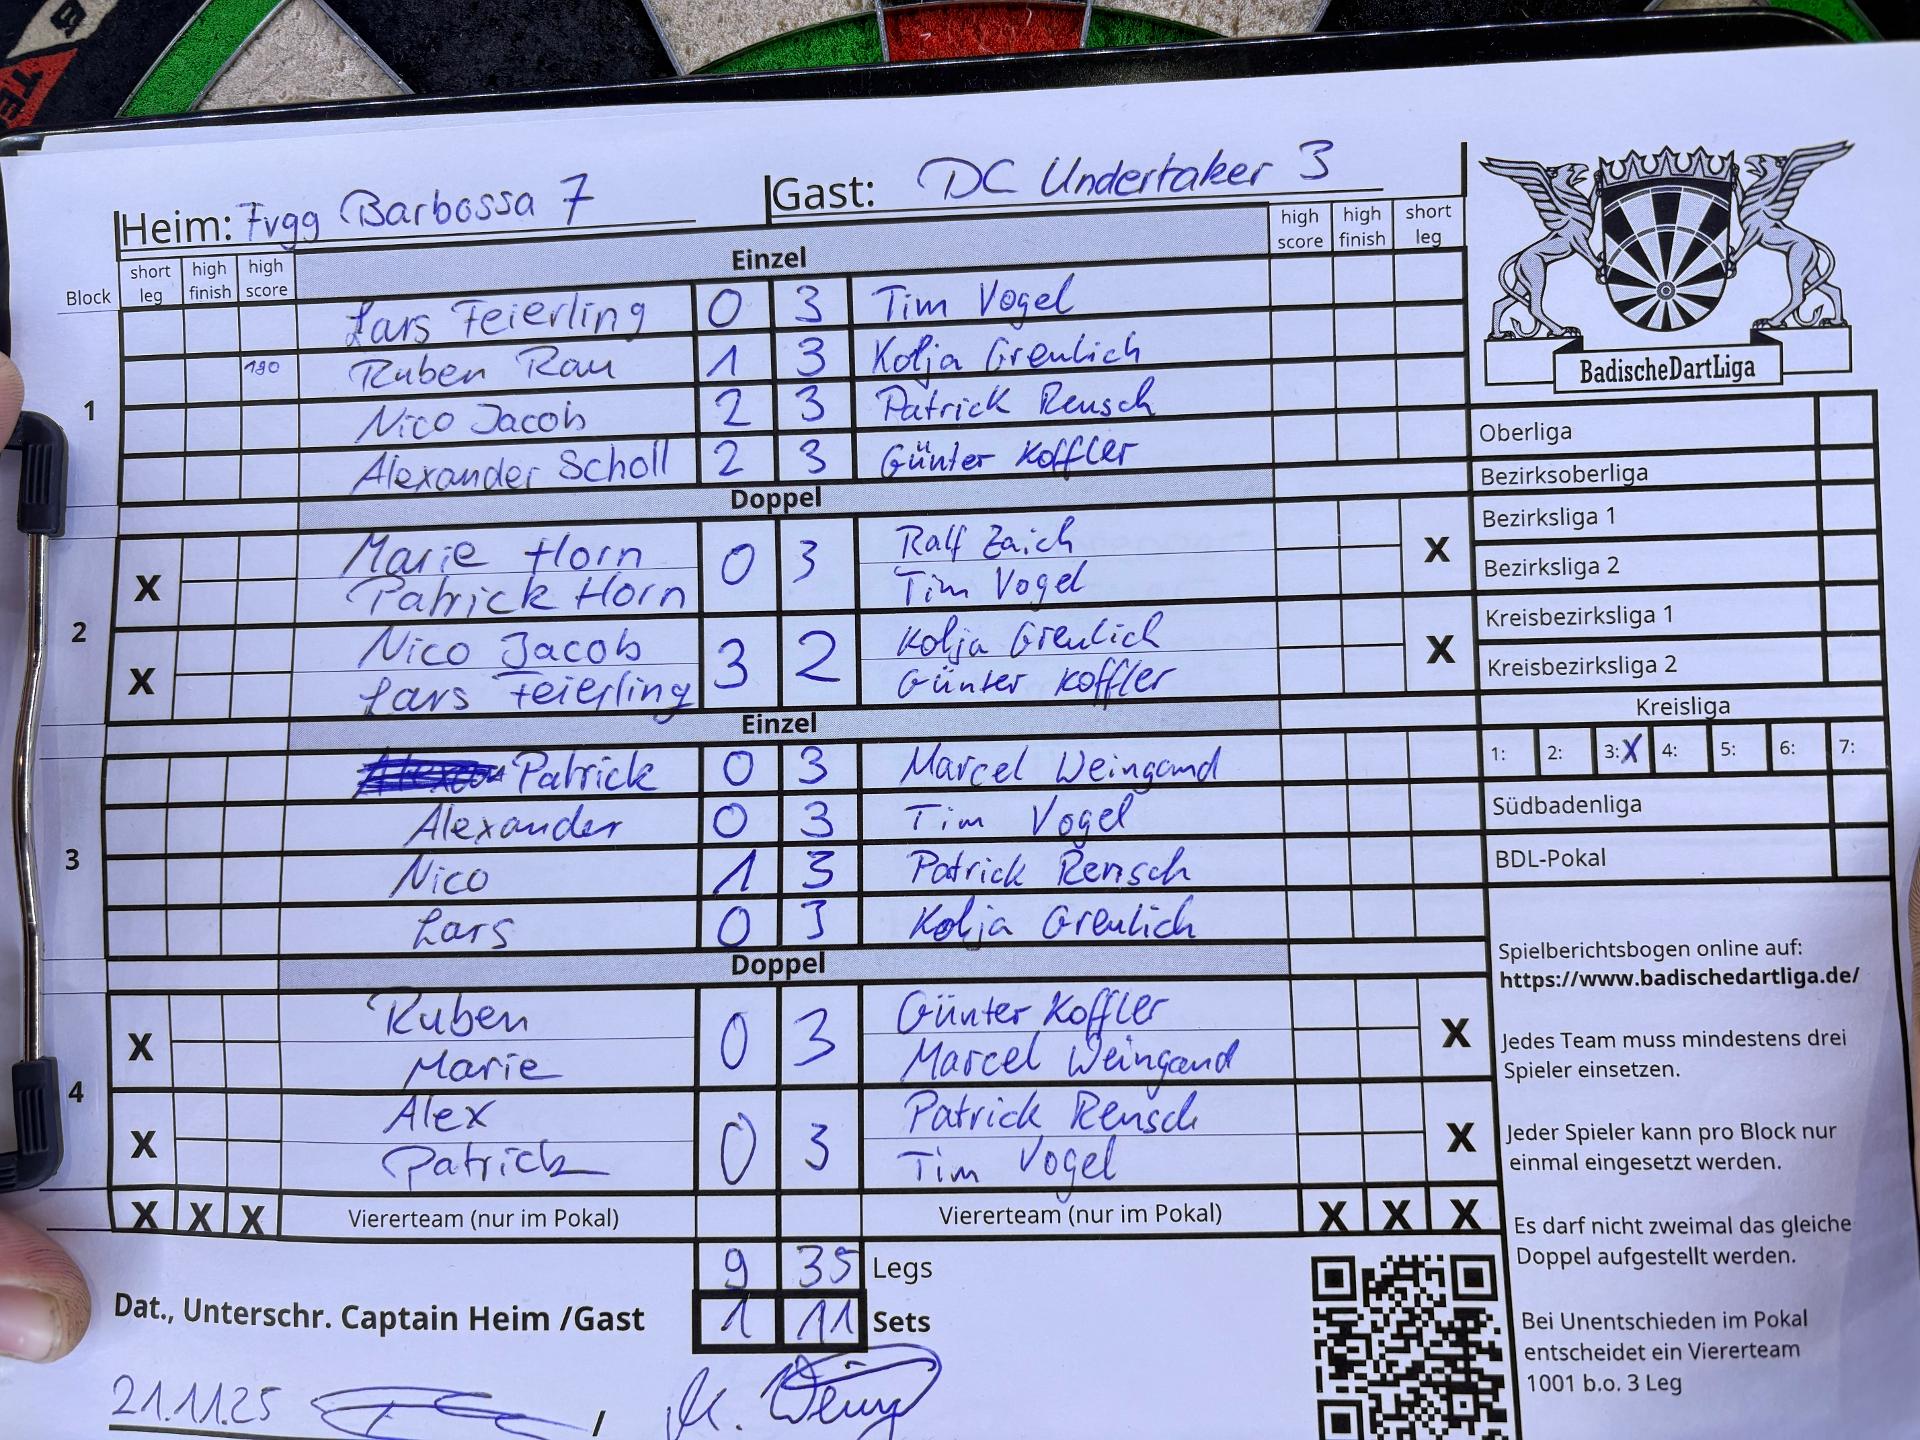 Heim: Fvgg Barbossa 7 Gast: DC Undertaker 3
Block short leg high finish high score Einzel high score high finish short leg
Lars Feierling 0 3 Tim Vogel
180 Ruben Rau 1 3 Kolja Greulich
1
Nico Jacob 2 3 Patrick Rensch
Alexander Scholl 2 3 Günter Koffler
Doppel
Marie Horn 0 3 Ralf Zaich
X Patrick Horn Tim Vogel X
2
Nico Jacob 3 2 Kolja Greulich
X Lars Feierling Günter Koffler X
Einzel
Patrick 0 3 Marcel Weingand
Alexander 0 3 Tim Vogel
3
Nico 1 3 Patrick Rensch
Lars 0 3 Kolja Greulich
Doppel
Ruben 0 3 Günter Koffler
X Marie Marcel Weingand X
4
Alex 0 3 Patrick Rensch
X Patrick Tim Vogel X
X X X Viererteam (nur im Pokal) Viererteam (nur im Pokal) X X X
9 35 Legs
Dat., Unterschr. Captain Heim /Gast 1 11 Sets
21.11.25 /
BadischeDartLiga
Oberliga
Bezirksoberliga
Bezirksliga 1
Bezirksliga 2
Kreisbezirksliga 1
Kreisbezirksliga 2
Kreisliga
1: 2: 3: X 4: 5: 6: 7:
Südbadenliga
BDL-Pokal
Spielberichtsbogen online auf:
https://www.badischedartliga.de/
Jedes Team muss mindestens drei
Spieler einsetzen.
Jeder Spieler kann pro Block nur
einmal eingesetzt werden.
Es darf nicht zweimal das gleiche
Doppel aufgestellt werden.
Bei Unentschieden im Pokal
entscheidet ein Viererteam
1001 b.o. 3 Leg